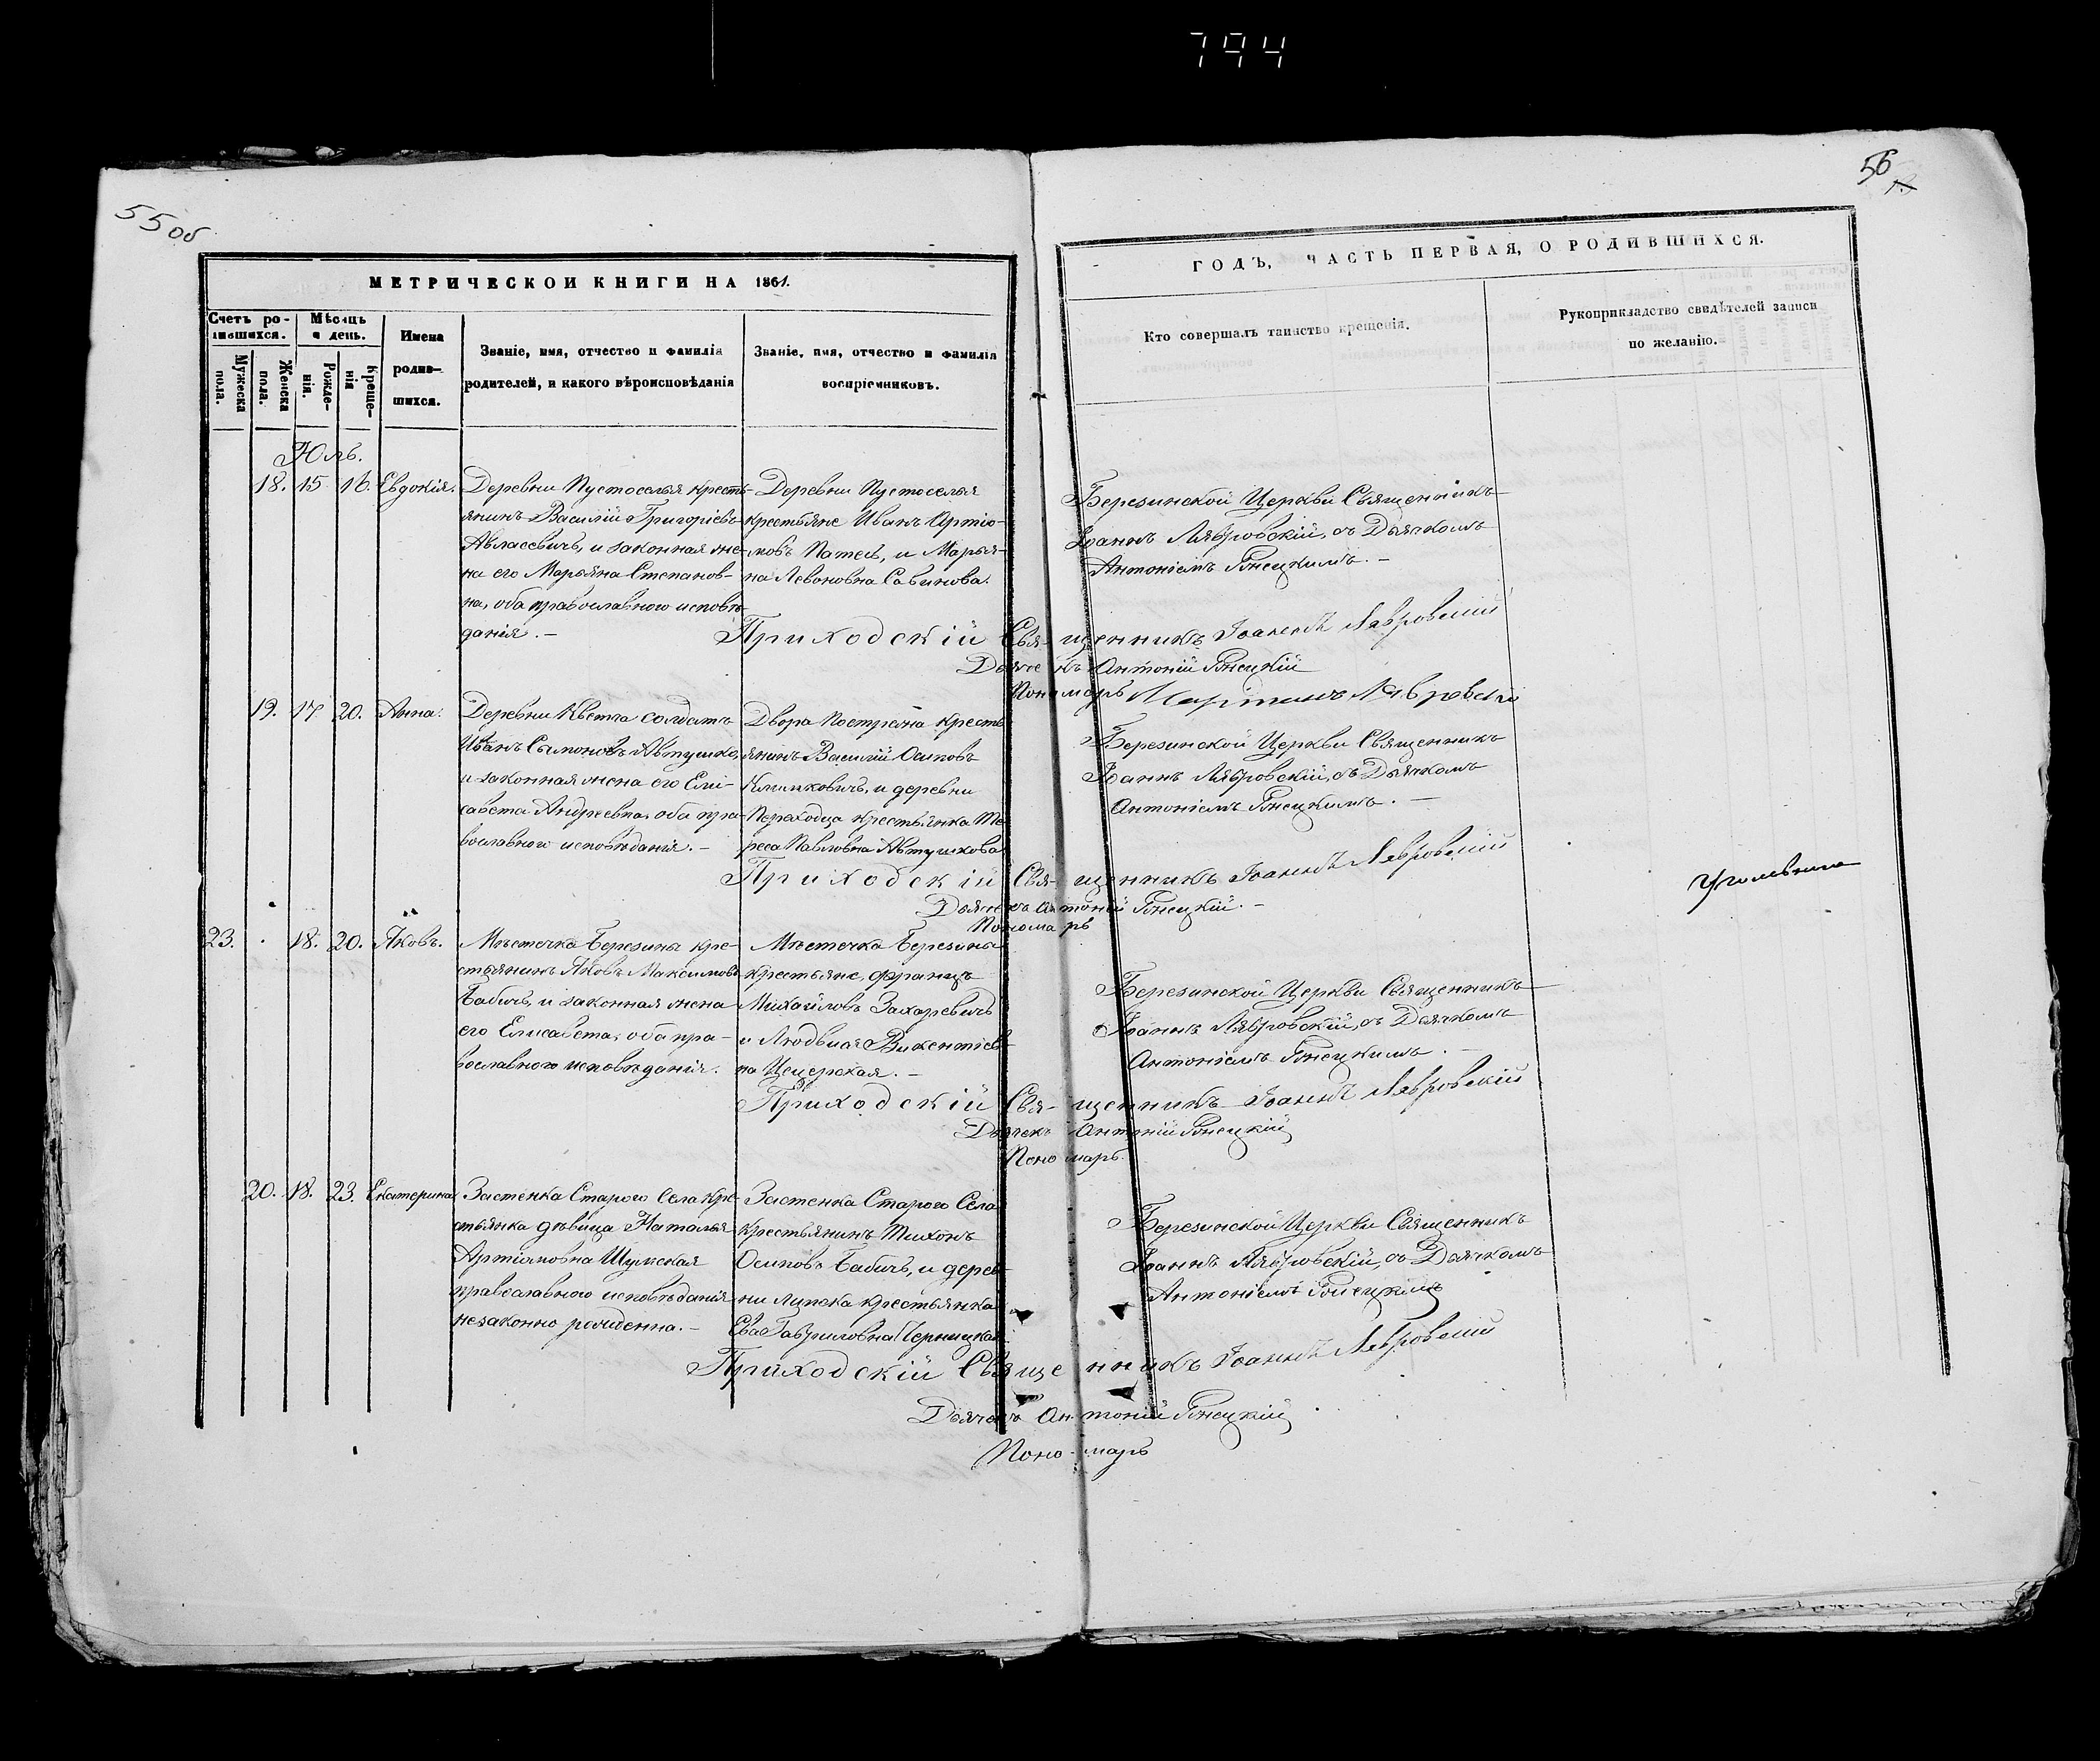 794
55 об
56
МЕТРИЧЕСКОЙ КНИГИ НА 1861.
Счетъ родившихся.
Мѣсяцъ и день.
Мужеска пола.
Женска пола.
Рожденія.
Крещенія
Имена родившихся.
Званіе, имя, отчество и фамилія
родителей, и какого вѣроисповѣданія
Званіе, имя, отчество и фамилія
воспріемниковъ.
ГОДЪ, ЧАСТЬ ПЕРВАЯ, О РОДИВШИХСЯ.
Кто совершалъ таинство крещенія.
Рукоприкладство свидѣтелей записи
по желанію.
Юль.
18. 15 16. Евдокія.
Деревни Пустоселья кресть-
янинъ Василій Григоріевъ
Авласевичъ, и законная же-
на его Марьяна Степанов-
на, оба православнаго исповѣ-
данія. —
Деревни Пустоселья
крестьяне Иванъ Артiо-
мовъ Патей, и Марья-
на Левоновна Савинова.
Березинской Церкви Священникъ
Іоаннъ Лавровскій, съ Дьячкомъ
Антоніемъ
Приходскій Священникъ Іоаннъ Лавровскій
Дьячекъ Антоній
Пономарь Мартинъ Лавровскій
19. 17 20. Анна.
Деревни Кветча солдатъ
Иванъ Сымоновъ Автушко,
и законная жена его Ели-
савета Андреевна, оба пра-
вославнаго исповѣданія. —
Двора Костраяна кресть-
янинъ Василій Осиповъ
Климковичъ, и деревни
Переходца крестьянка Те-
реса Павловна Автушкова
Березинской Церкви Священникъ
Іоаннъ Лавровскій, съ Дьячкомъ
Антоніемъ
Приходскій Священникъ Іоаннъ Лавровскій
Дьячекъ Антоній
Пономарь
23. 18. 20. Яковъ.
Мѣстечка Березина кре-
стьянинъ Яковъ Максимовъ
Бабичъ, и законная жена
его Елисавета, оба пра-
вославнаго исповѣданія.
Мѣстечка Березина
крестьяне, Францъ
Михайловъ Захаревичъ
и Людвися Викентіев-
на Цецерская. —
Березинской Церкви Священникъ
Іоаннъ Лавровскій, съ Дьячкомъ
Антоніемъ
Приходскій Священникъ Іоаннъ Лавровскій
Дьячекъ Антоній
Пономарь
20. 18. 23. Екатерина
Застенка Старого Села кре-
стьянка дѣвица Наталья
Артiомовна Шумская
православнаго исповѣданія
незаконно рожденна. —
Застенка Старого Села
крестьянинъ Тихонъ
Осиповъ Бабичъ, и дерев-
ни Липска крестьянка
Ева Гавриловна Черницкая
Березинской Церкви Священникъ
Іоаннъ Лавровскій, съ Дьячкомъ
Антоніемъ
Приходскій Священникъ Іоаннъ Лавровскій
Дьячекъ Антоній
Пономарь